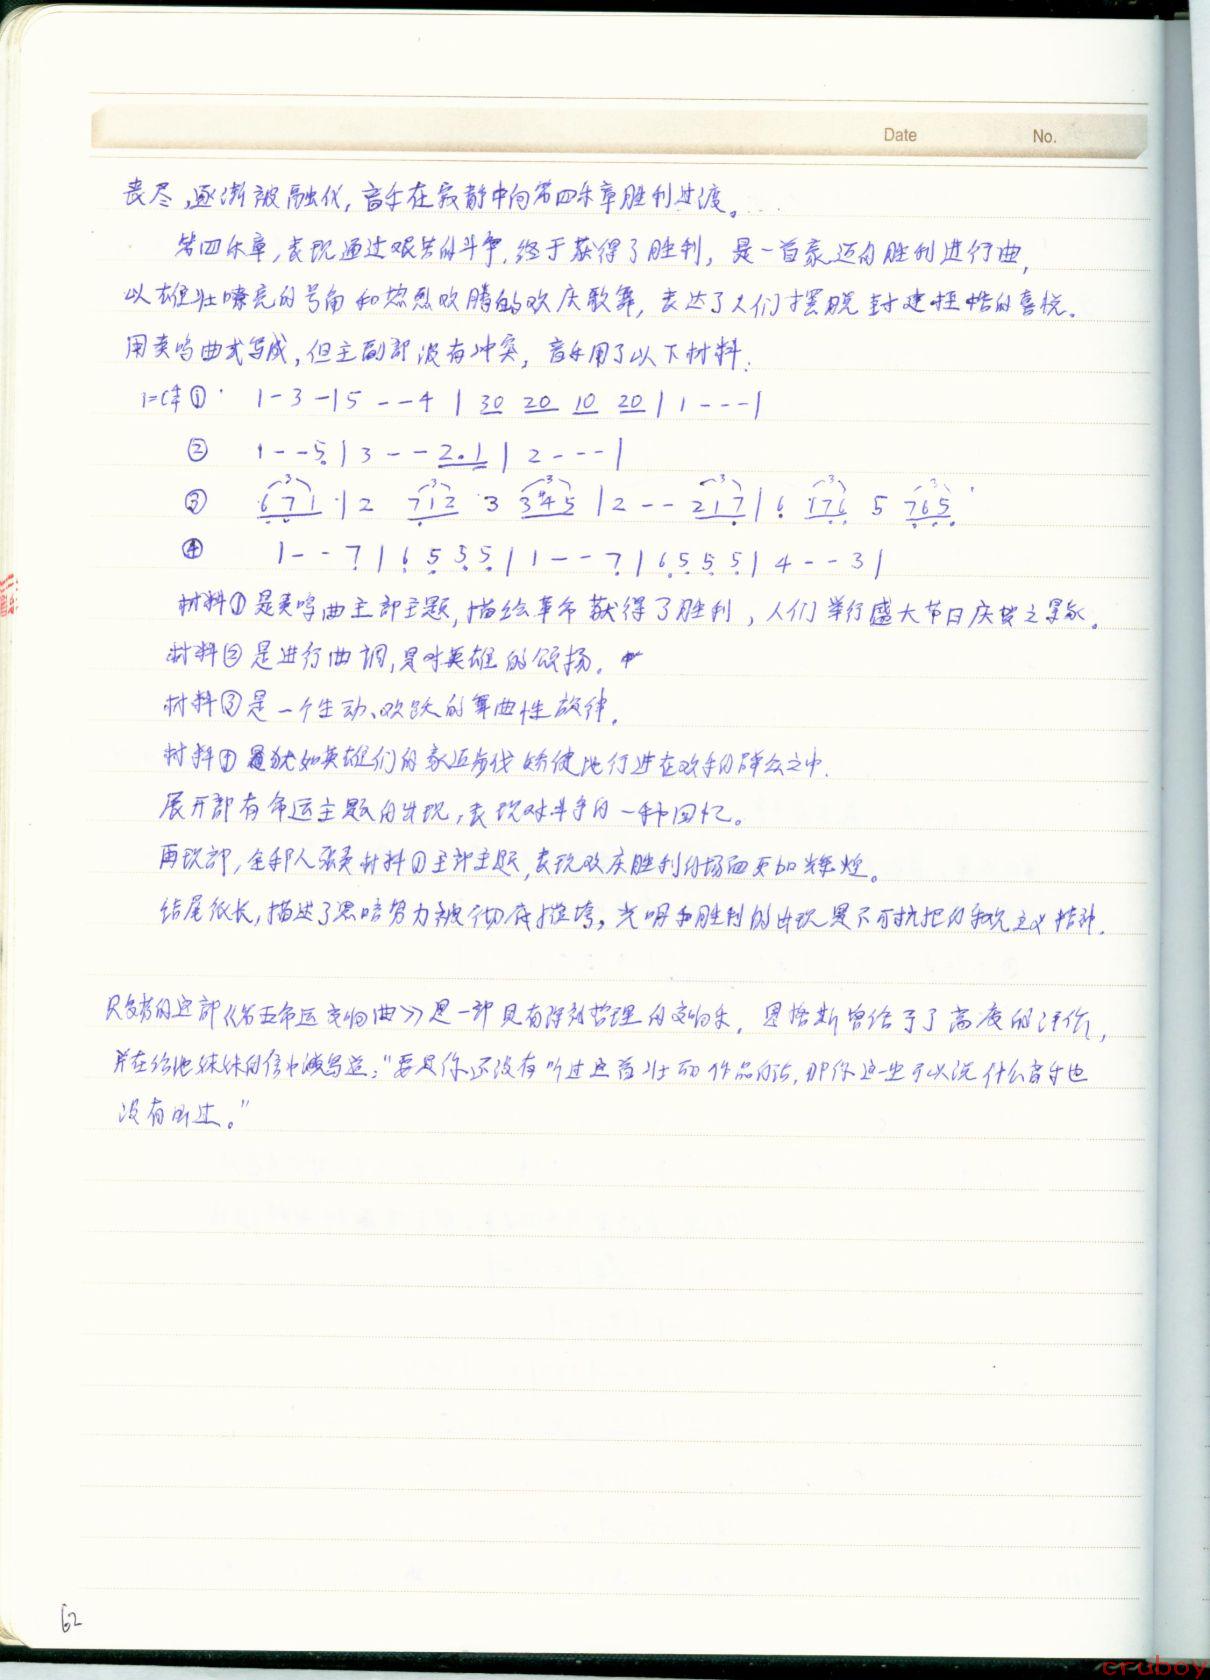 Date No.
丧尽，逐渐被融化，音乐在寂静中向第四乐章胜利过渡。
第四乐章，表现通过艰苦的斗争，终于获得了胜利，是一首豪迈的胜利进行曲，
以雄壮嘹亮的号角和热烈欢腾的欢庆歌舞，表达了人们摆脱封建桎梏的喜悦。
用奏鸣曲式写成，但主副部没有冲突，音乐用了以下材料：
1=C 4/4 ① 1-3-|5--4|30 20 10 20|1---|
② 1--5|3--2.1|2---|
③ 671|2 712 3 3#45|2--217|6 176 5 765
④ 1--7|6 5 5 5|1--7|6 5 5 5|4--3|
材料①是奏鸣曲主部主题，描绘革命获得了胜利，人们举行盛大节日庆贺之景象。
材料②是进行曲调，是对英雄的颂扬。
材料③是一个生动、欢跃的舞曲性旋律。
材料④犹如英雄们的豪迈步伐矫健地行进在欢乐的群众之中.
展开部有命运主题的出现，表现对斗争的一种回忆。
再现部，全部人张奏材料①主部主题，表现欢庆胜利的场面更加辉煌。
结尾很长，描述了黑暗势力被彻底摧垮，光明和胜利的出现是不可抗拒的乐观主义精神.
贝多芬的这部《第五命运交响曲》是一部具有深刻哲理的交响乐，恩格斯曾给予了高度的评价，
并在给他妹妹的信中减写道："要是你还没有听过这首壮丽作品的话，那你这一生可以说什么音乐也
没有听过。"
62
cruboy